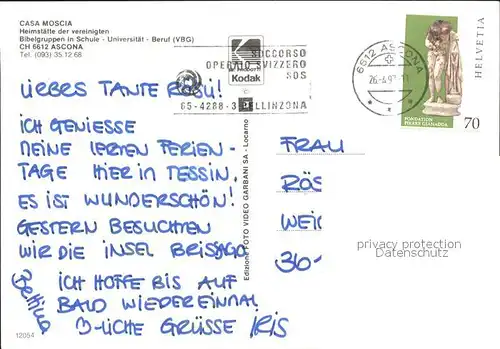 CASA MOSCIA
Heimstätte der vereinigten
Bibelgruppen in Schule - Universität - Beruf (VBG)
CH 6612 ASCONA
Tel. (093) 35.12.68
SOCCORSO
OPERAIO SVIZZERO
SOS
65-4288-3 BELLINZONA
Kodak
6612 ASCONA
HELVETIA
FONDATION
PIERRE GIANADDA
70
LIEBES TANTE ROSÜ!
ICH GENIESSE
MEINE LETZTEN FERIEN-
TAGE HIER IN TESSIN,
ES IST WUNDERSCHÖN!
GESTERN BESUCHTEN
WIR DIE INSEL BRISSAGO
ICH HOFFE BIS AUF
BALD WIEDEREINMAL
3-LICHE GRÜSSE IRIS
Bettina
Edizione FOTO VIDEO GARBANI SA - Locarno
FRAU
RÖS
WEIC
36-
privacy protection
Datenschutz
12054